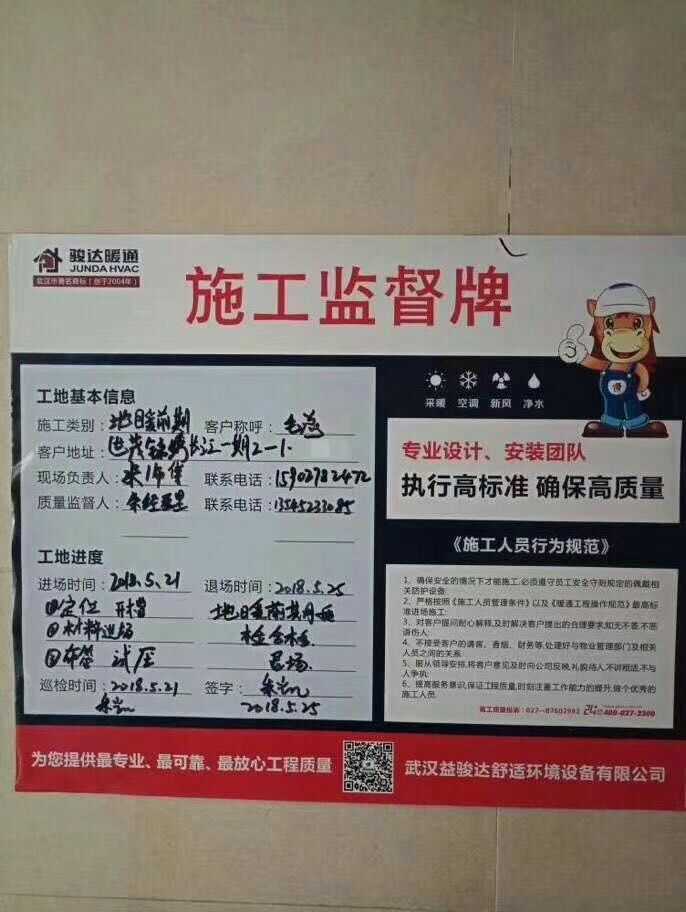 骏达暖通
JUNDA HVAC
武汉市著名商标（创于2004年）
施工监督牌
采暖 空调 新风 净水
工地基本信息
施工类别：地暖前期 客户称呼：
客户地址：长江一期2-1.
现场负责人： 联系电话：15902782472
质量监督人： 联系电话：13545233085
工地进度
进场时间：2018.5.21 退场时间：2018.5.25
①定位 开槽
②材料进场
③布管 试压
巡检时间：2018.5.21 签字：
2018.5.25
专业设计、安装团队
执行高标准 确保高质量
《施工人员行为规范》
1、确保安全的情况下才能施工，必须遵守员工安全守则规定的佩戴相
关防护设备
2、严格按照《施工人员管理条件》以及《暖通工程操作规范》最高标
准进场施工；
3、对客户提问耐心解释，及时解决客户提出的合理要求，知无不答，不恶
语伤人；
4、不接受客户的请客、香烟、财务等，处理好与物业管理部门及相关
人员之间的关系
5、服从领导安排，将客户意见及时向公司反映，礼貌待人不讲粗话，不与
人争执；
6、提高服务意识，保证工程质量，时刻注重工作能力的提升，做个优秀的
施工人员
施工质量投诉：027-87602992 400-027-2300
为您提供最专业、最可靠、最放心工程质量
武汉益骏达舒适环境设备有限公司